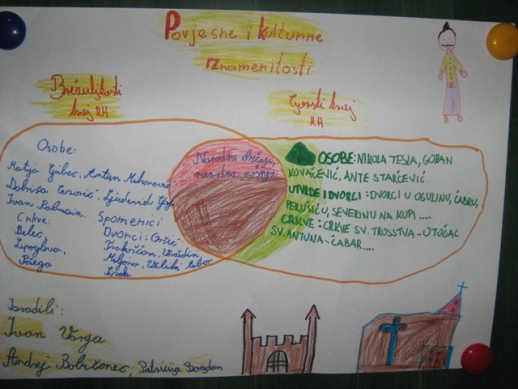 Povjesne i kulturne
znamenitosti
Brežuljkasti
kraj RH
Gorski kraj
RH
Osobe:
Matija Gubec, Antun Mihanović
Dobriša Cesarić, Ljudevit Gaj
Ivan
Crkve:
Belec
Lepoglava,
Požega
Spomenici
Dvorci: Oršić
Trakošćan, Varaždin
Miljana, Veliki Tabor
Narodni običaji,
narodna
OSOBE: NIKOLA TESLA, GORAN
KOVAČEVIĆ, ANTE STARČEVIĆ.
UTVRDE I DVORCI: DVORCI U OGULINU, ČABRU,
PERUŠIĆU, SEVERINU NA KUPI ....
CRKVE: CRKVE SV. TROSSTVA-OTOČAC
SV. ANTUNA-ČABAR....
Izradili:
Ivan Varga
Andrej Patricija Bogdan